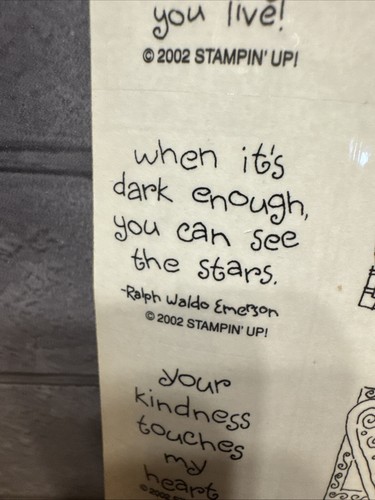 you live!
© 2002 STAMPIN' UP!
when it's
dark enough,
you can see
the stars.
-Ralph Waldo Emerson
© 2002 STAMPIN' UP!
your
kindness
touches
my
heart
© 2002